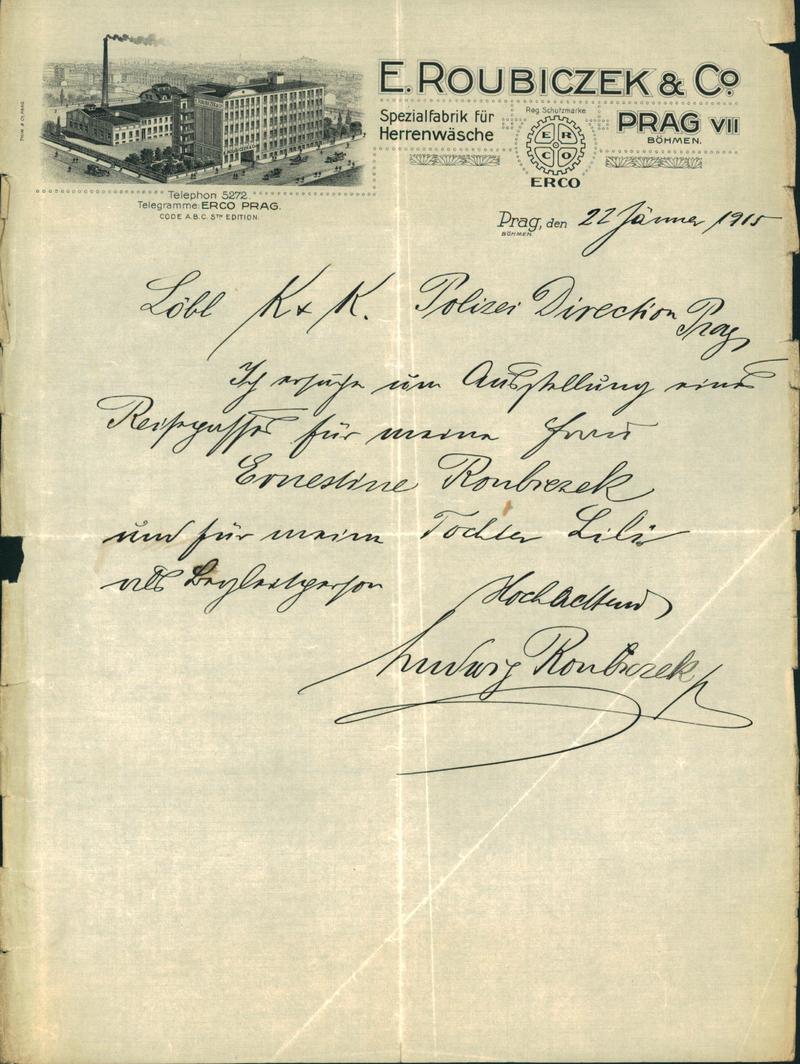 E. ROUBICZEK & Co.
Spezialfabrik für
Herrenwäsche
Reg. Schutzmarke
R
E C
O
ERCO
PRAG VII
BÖHMEN.
Telephon 5272.
Telegramme: ERCO PRAG.
CODE A.B.C. 5TH EDITION.
Prag, den 22 Jänner 1915
BÖHMEN.
Löbl K & K. Polizei Direction Prag
Ich ersuche um Ausstellung eines
Reisepasses für meine Frau
Ernestine Roubiczek
und für meine Tochter Lili
als Begleitperson
Hochachtend
Ludwig Roubiczek